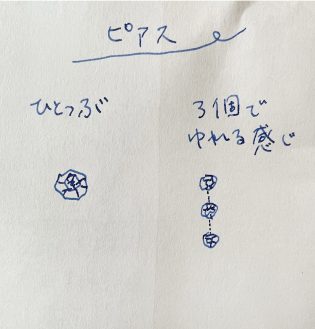 ピアス
ひとつぶ
3個で
ゆれる感じ